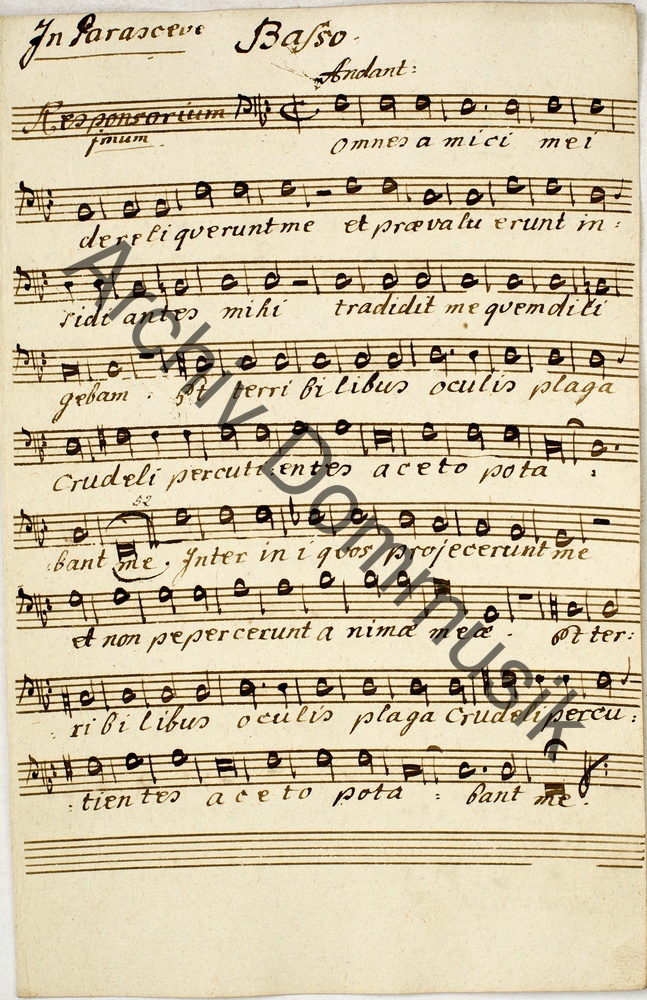 In Parasceve Basso.
Andant:
Responsorium
jmum
omnes amici mei
dereliqverunt me et prævaluerunt in:
sidiantes mihi tradidit me quem dili
gebam. Et terribilibus oculis plaga
Crudeli percuti:entes aceto pota:
52
bant me. Inter iniqvos projecerunt me
et non pepercerunt animæ meæ. Et ter:
ribilibus oculis plaga Crudeli percu:
:tientes aceto pota: bant me.
Archiv Dommusik